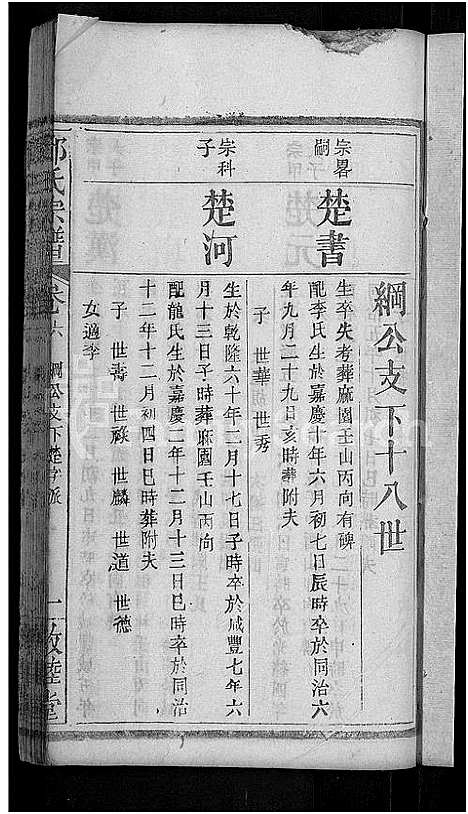 綱公支下十八世
宗畧嗣
楚書
生卒失考葬麻園壬山丙向有碑
配李氏生於嘉慶十年六月初七日辰時卒於同治六
年九月二十九日亥時葬附夫
子 世華 世秀
宗科子
楚河
生於乾隆六十年二月十七日子時卒於咸豐七年六
月十三日子時葬麻園壬山丙向
配龍氏生於嘉慶二年十二月十三日巳時卒於同治
十二年十二月初四日巳時葬附夫
子 世壽 世祿 世麟 世道 世德
女適李
氏宗譜
卷六 綱公支下楚字派
一 敦陸堂